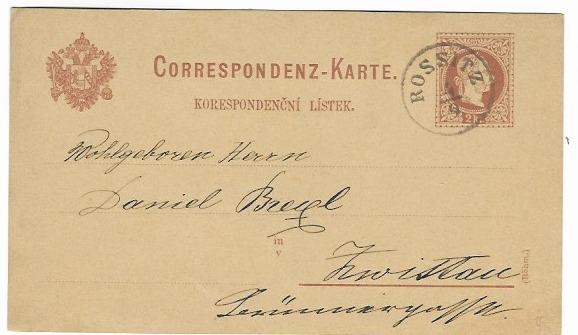 CORRESPONDENZ-KARTE.
KORESPONDENČNÍ LÍSTEK.
ROSSITZ
2
Wohlgeboren Herrn
Daniel Brexl
in
v
Zwittau
(Böhm.)
Brünnergasse.